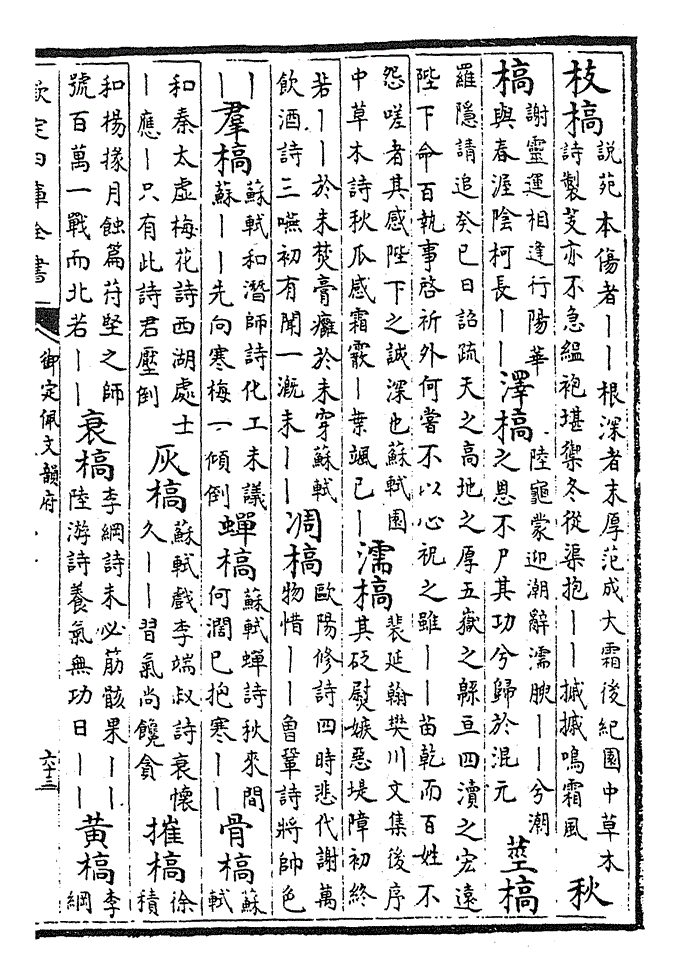 枝槁 說苑本傷者――根深者末厚范成大霜後紀園中草木
詩製芰亦不急縕袍堪禦冬從渠抱――摵摵鳴霜風 秋
槁 謝靈運相逢行陽華
與春渥陰柯長―― 澤槁 陸龜蒙迎潮辭濡腴――兮潮
之恩不尸其功兮歸於混元 莖槁
羅隱請追癸巳日詔疏天之高地之厚五嶽之緜亘四瀆之宏遠
陛下命百執事啓祈外何嘗不以心祝之雖――苗乾而百姓不
怨嗟者其感陛下之誠深也蘇軾園
中草木詩秋瓜感霜霰―葉颯已― 濡槁 裴延翰樊川文集後序
其砭熨嫉惡堤障初終
若――於未焚膏癰於未穿蘇軾
飲酒詩三嚥初有聞一溉未―― 凋槁 歐陽修詩四時悲代謝萬
物惜――魯鞏詩將帥色
― 羣槁 蘇軾和潛師詩化工未議
蘇――先向寒梅一傾倒 蟬槁 蘇軾蟬詩秋來間
何濶已抱寒―― 骨槁 蘇
軾
和秦太虚梅花詩西湖處士
―應―只有此詩君壓倒 灰槁 蘇軾戲李端叔詩衰懷
久――習氣尚饞貪 摧槁 徐
積
和楊掾月蝕篇苻堅之師
號百萬一戰而北若―― 衰槁 李綱詩未必筋骸果――
陸游詩養氣無功日―― 黄槁 李
綱
欽定四庫全書
御定佩文韻府
六十三